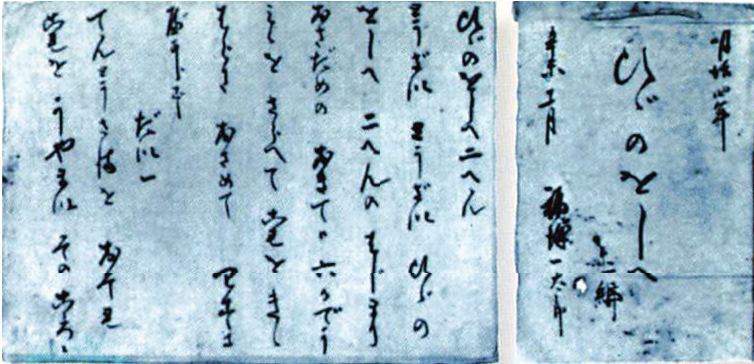 明治四年
ひゞのをしへ
辛未 福澤一太郎
ひゞのをしへ二へん
とうざい とうざい ひゞの
をしへ 二へんの はじまり
おさだめの おきては 六かでう
みゝを さらへて これを きゝ
はらに おさめて わするべ
からず
だい一
てんとうさまを おそれ
これを うやまい その こゝろ